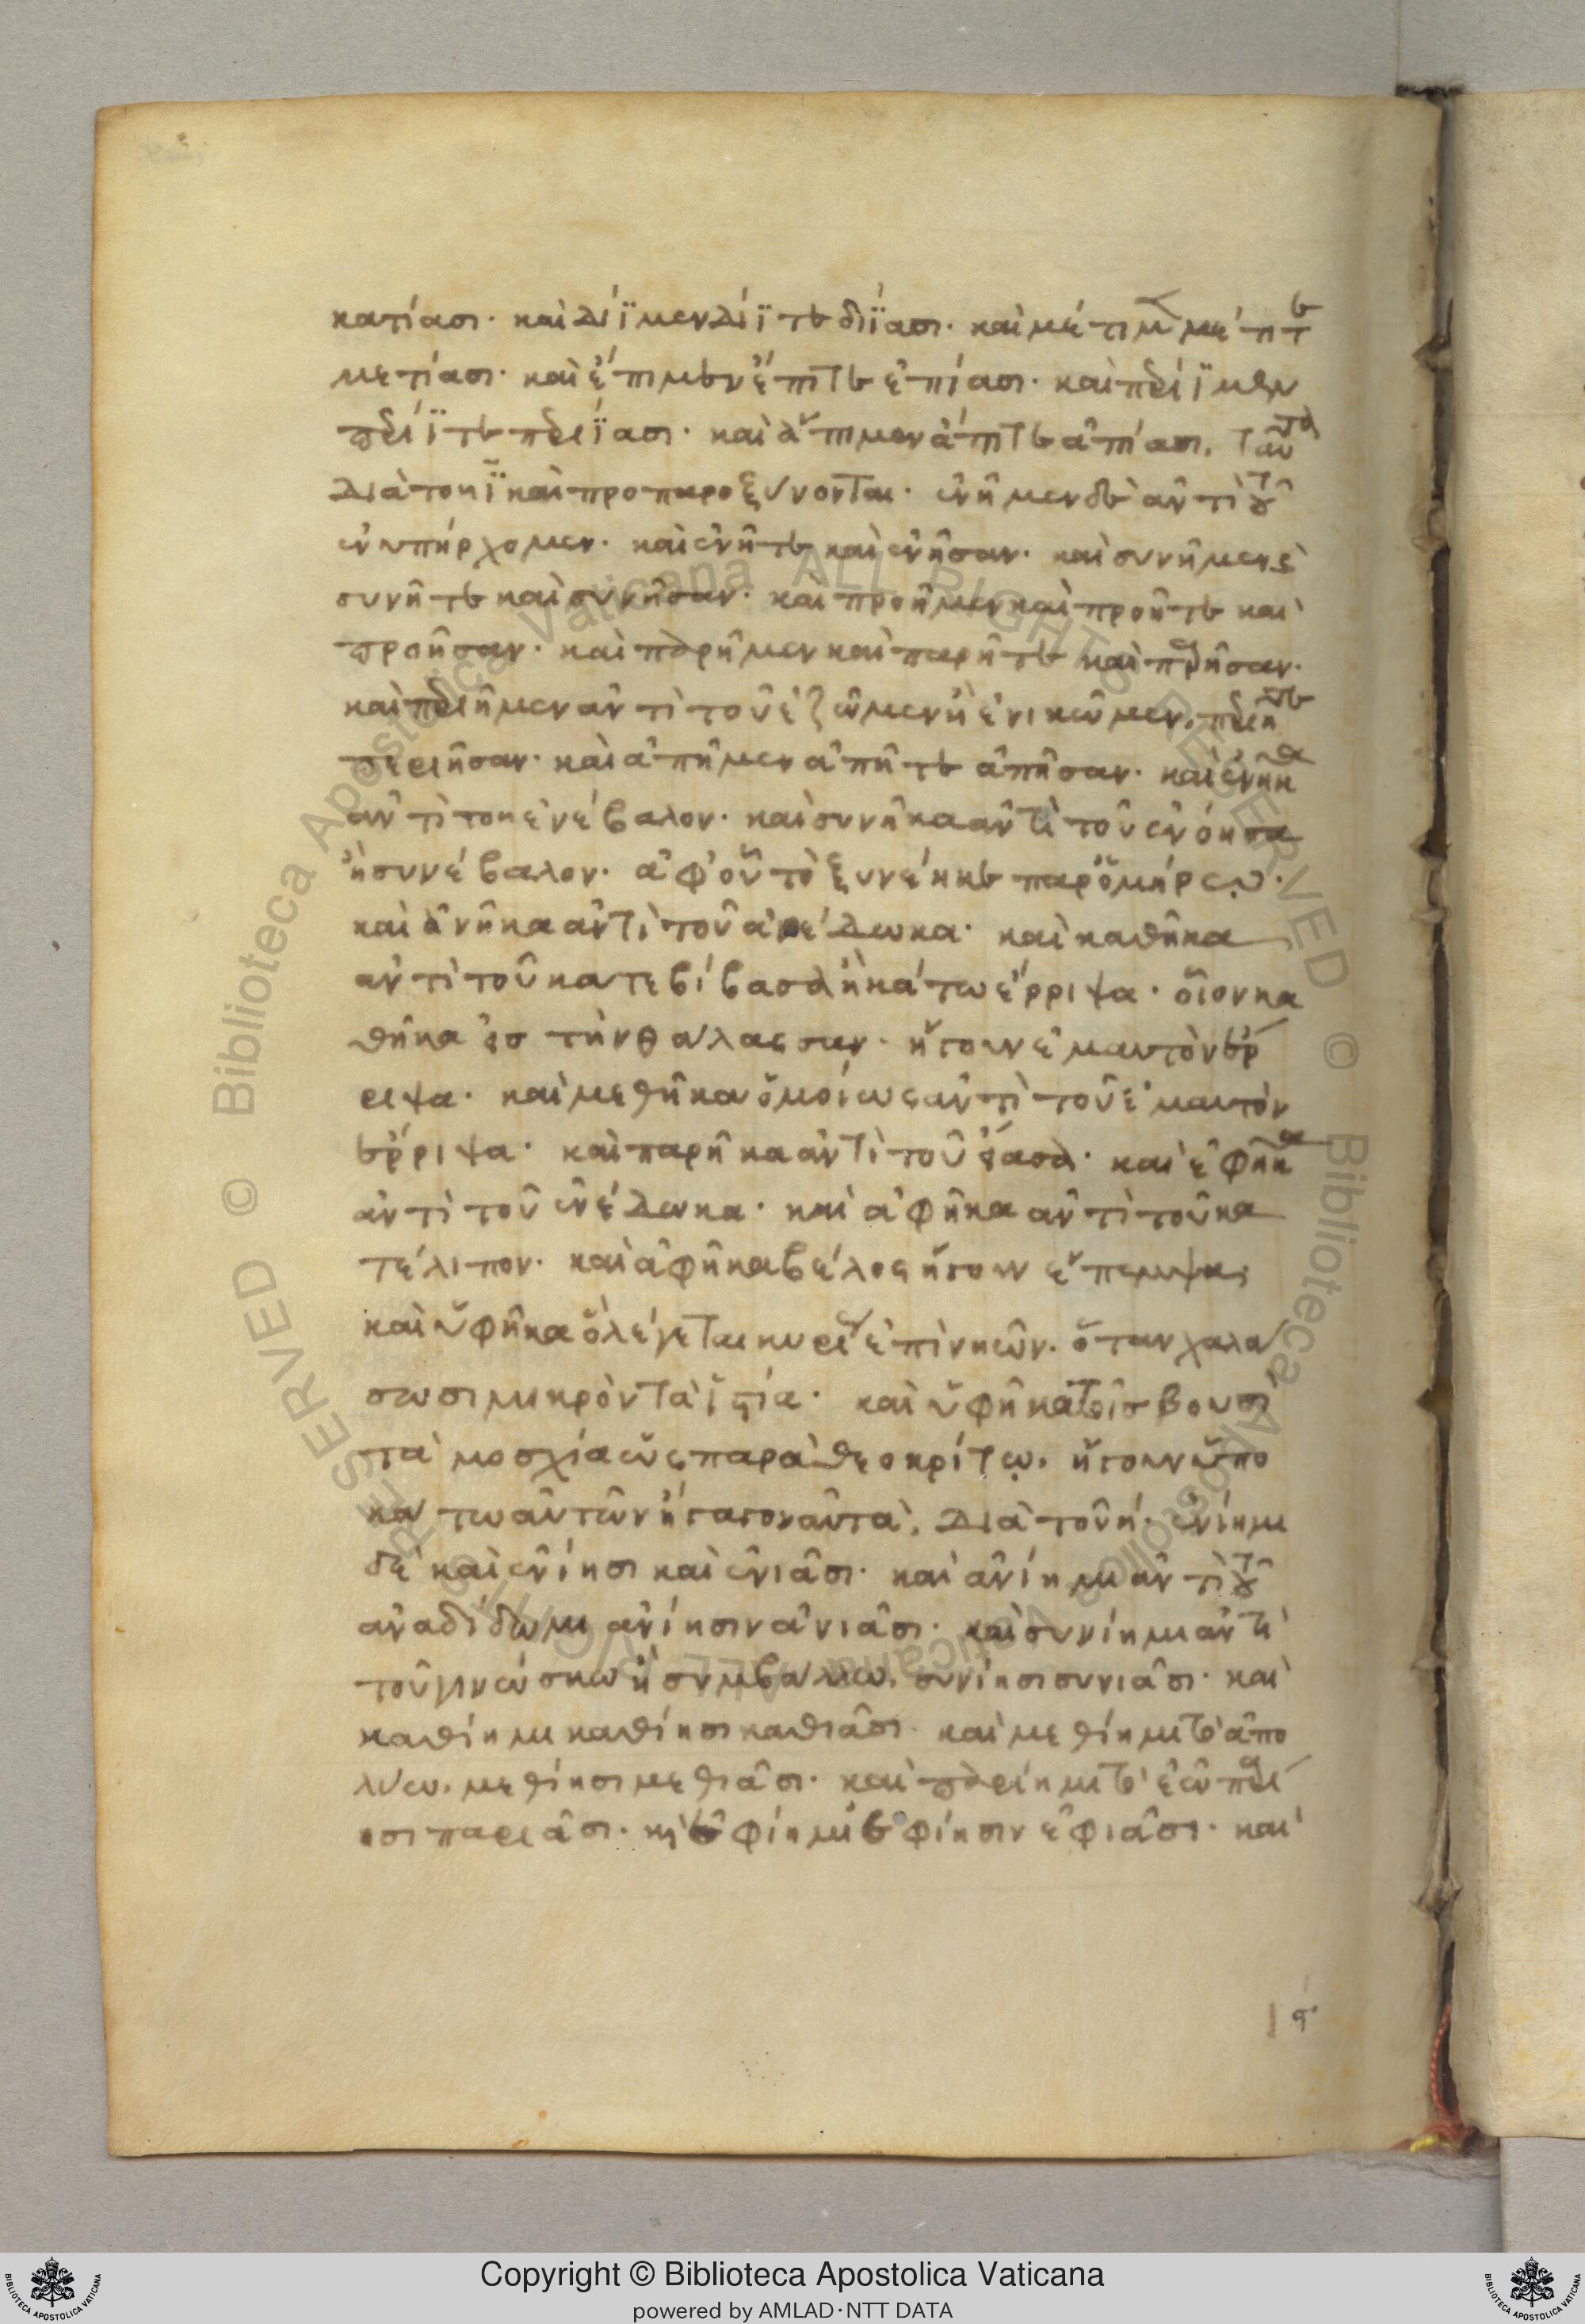 κατίασι· καὶ δίϊμεν δίϊτε διΐασι· καὶ μέτιμεν μέτιτε
μετίασι· καὶ ἔπιμεν ἔπιτε ἐπίασι· καὶ περίϊμεν
περίϊτε περιΐασι· καὶ ἄπιμεν ἄπιτε ἀπίασι. ταῦτα
διὰ τοῦ ϊ καὶ προπαροξύνονται· ἐνῆμεν δὲ ἀντὶ τοῦ
ἐνυπήρχομεν· καὶ ἐνῆτε καὶ ἐνῆσαν· καὶ συνῆμεν καὶ
συνῆτε καὶ συνῆσαν· καὶ προῆμεν καὶ προῆτε καὶ
προῆσαν· καὶ παρῆμεν καὶ παρῆτε καὶ παρῆσαν·
καὶ περιῆμεν ἀντὶ τοῦ ἐζῶμεν ἢ ἐνικῶμεν. περιῆτε
περιῆσαν· καὶ ἀπῆμεν ἀπῆτε ἀπῆσαν· καὶ ἐνῆκα
ἀντὶ τοῦ ἐνέβαλον· καὶ συνῆκα ἀντὶ τοῦ ἐνόησα
ἢ συνέβαλον· ἀφ' οὗ τὸ ξυνέηκε παρ' ὁμήρῳ·
καὶ ἀνῆκα ἀντὶ τοῦ ἀνέδωκα· καὶ καθῆκα
ἀντὶ τοῦ κατεβίβασα ἢ κάτω ἔρριψα· οἷον κα
θῆκα ἐς τὴν θάλασσαν· ἤγουν ἐμαυτὸν ἔρ
ριψα· καὶ μεθῆκα ὁμοίως ἀντὶ τοῦ ἐμαυτὸν
ἔρριψα· καὶ παρῆκα ἀντὶ τοῦ εἴασα· καὶ ἐφῆκα
ἀντὶ τοῦ ἐνέδωκα· καὶ ἀφῆκα ἀντὶ τοῦ κα
τέλιπον· καὶ ἀφῆκα βέλος ἤγουν ἔπεμψα·
καὶ ὑφῆκα ὃ λέγεται κυρίως ἐπὶ νηῶν. ὅταν χαλά
σωσι μικρὸν τὰ ἱστία· καὶ ὑφῆκα τοῖς βουσὶ
τὰ μοσχία ὡς παρὰ θεοκρίτῳ. ἤγουν ὑπο
κάτω αὐτῶν ἤγαγον αὐτά. διὰ τοῦ ή· ἐνίημι
δὲ καὶ ἐνίησι καὶ ἐνιᾶσι· καὶ ἀνίημι ἀντὶ τοῦ
ἀναδίδωμι ἀνίησιν ἀνιᾶσι· καὶ συνίημι ἀντὶ
τοῦ γινώσκω ἢ συμβάλλω. συνίησι συνιᾶσι· καὶ
καθίημι καθίησι καθιᾶσι· καὶ μεθίημι τὸ ἀπο
λύω. μεθίησι μεθιᾶσι· καὶ παρίημι τὸ ἐῶ παρί
ησι παριᾶσι. καὶ ἐφίημι ἐφίησιν ἐφιᾶσι· καὶ
Copyright © Biblioteca Apostolica Vaticana
powered by AMLAD·NTT DATA